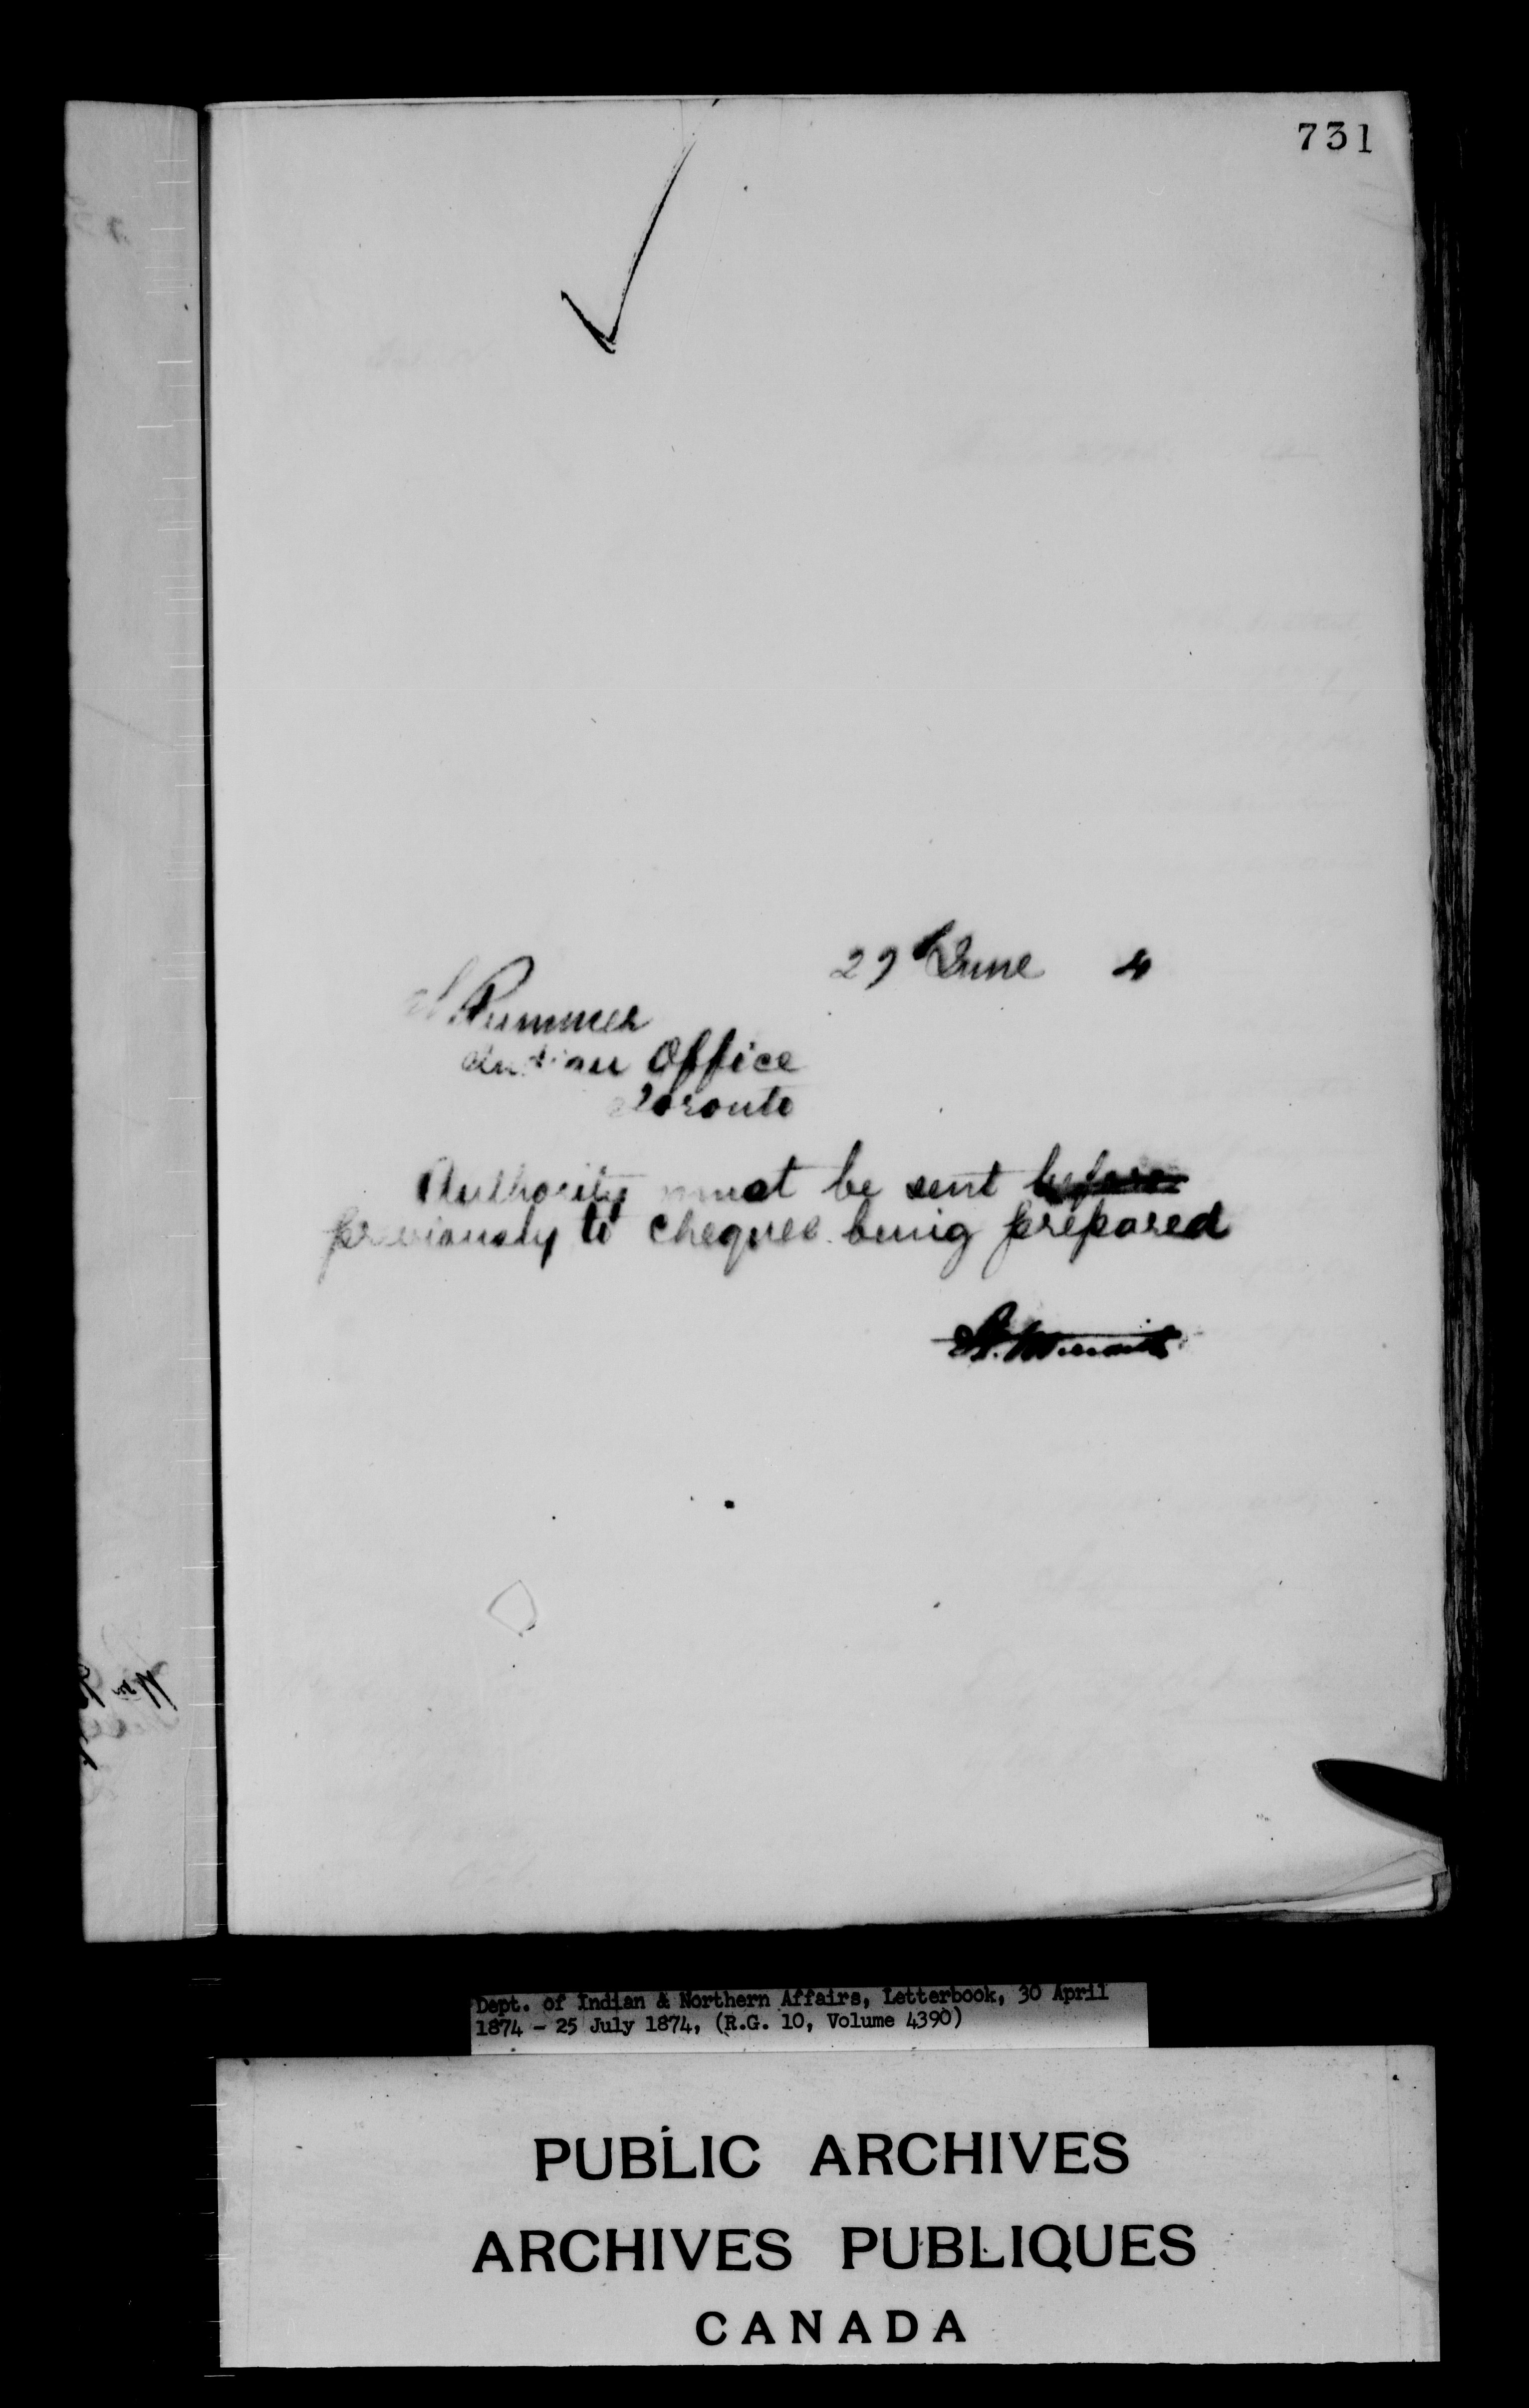 731
29 June 4
Plummer
Indian Office
Toronto
Authority must be sent before
previously to cheques being prepared
Dept. of Indian & Northern Affairs, Letterbook, 30 April
1874 - 25 July 1874, (R.G. 10, Volume 4390)
PUBLIC ARCHIVES
ARCHIVES PUBLIQUES
CANADA